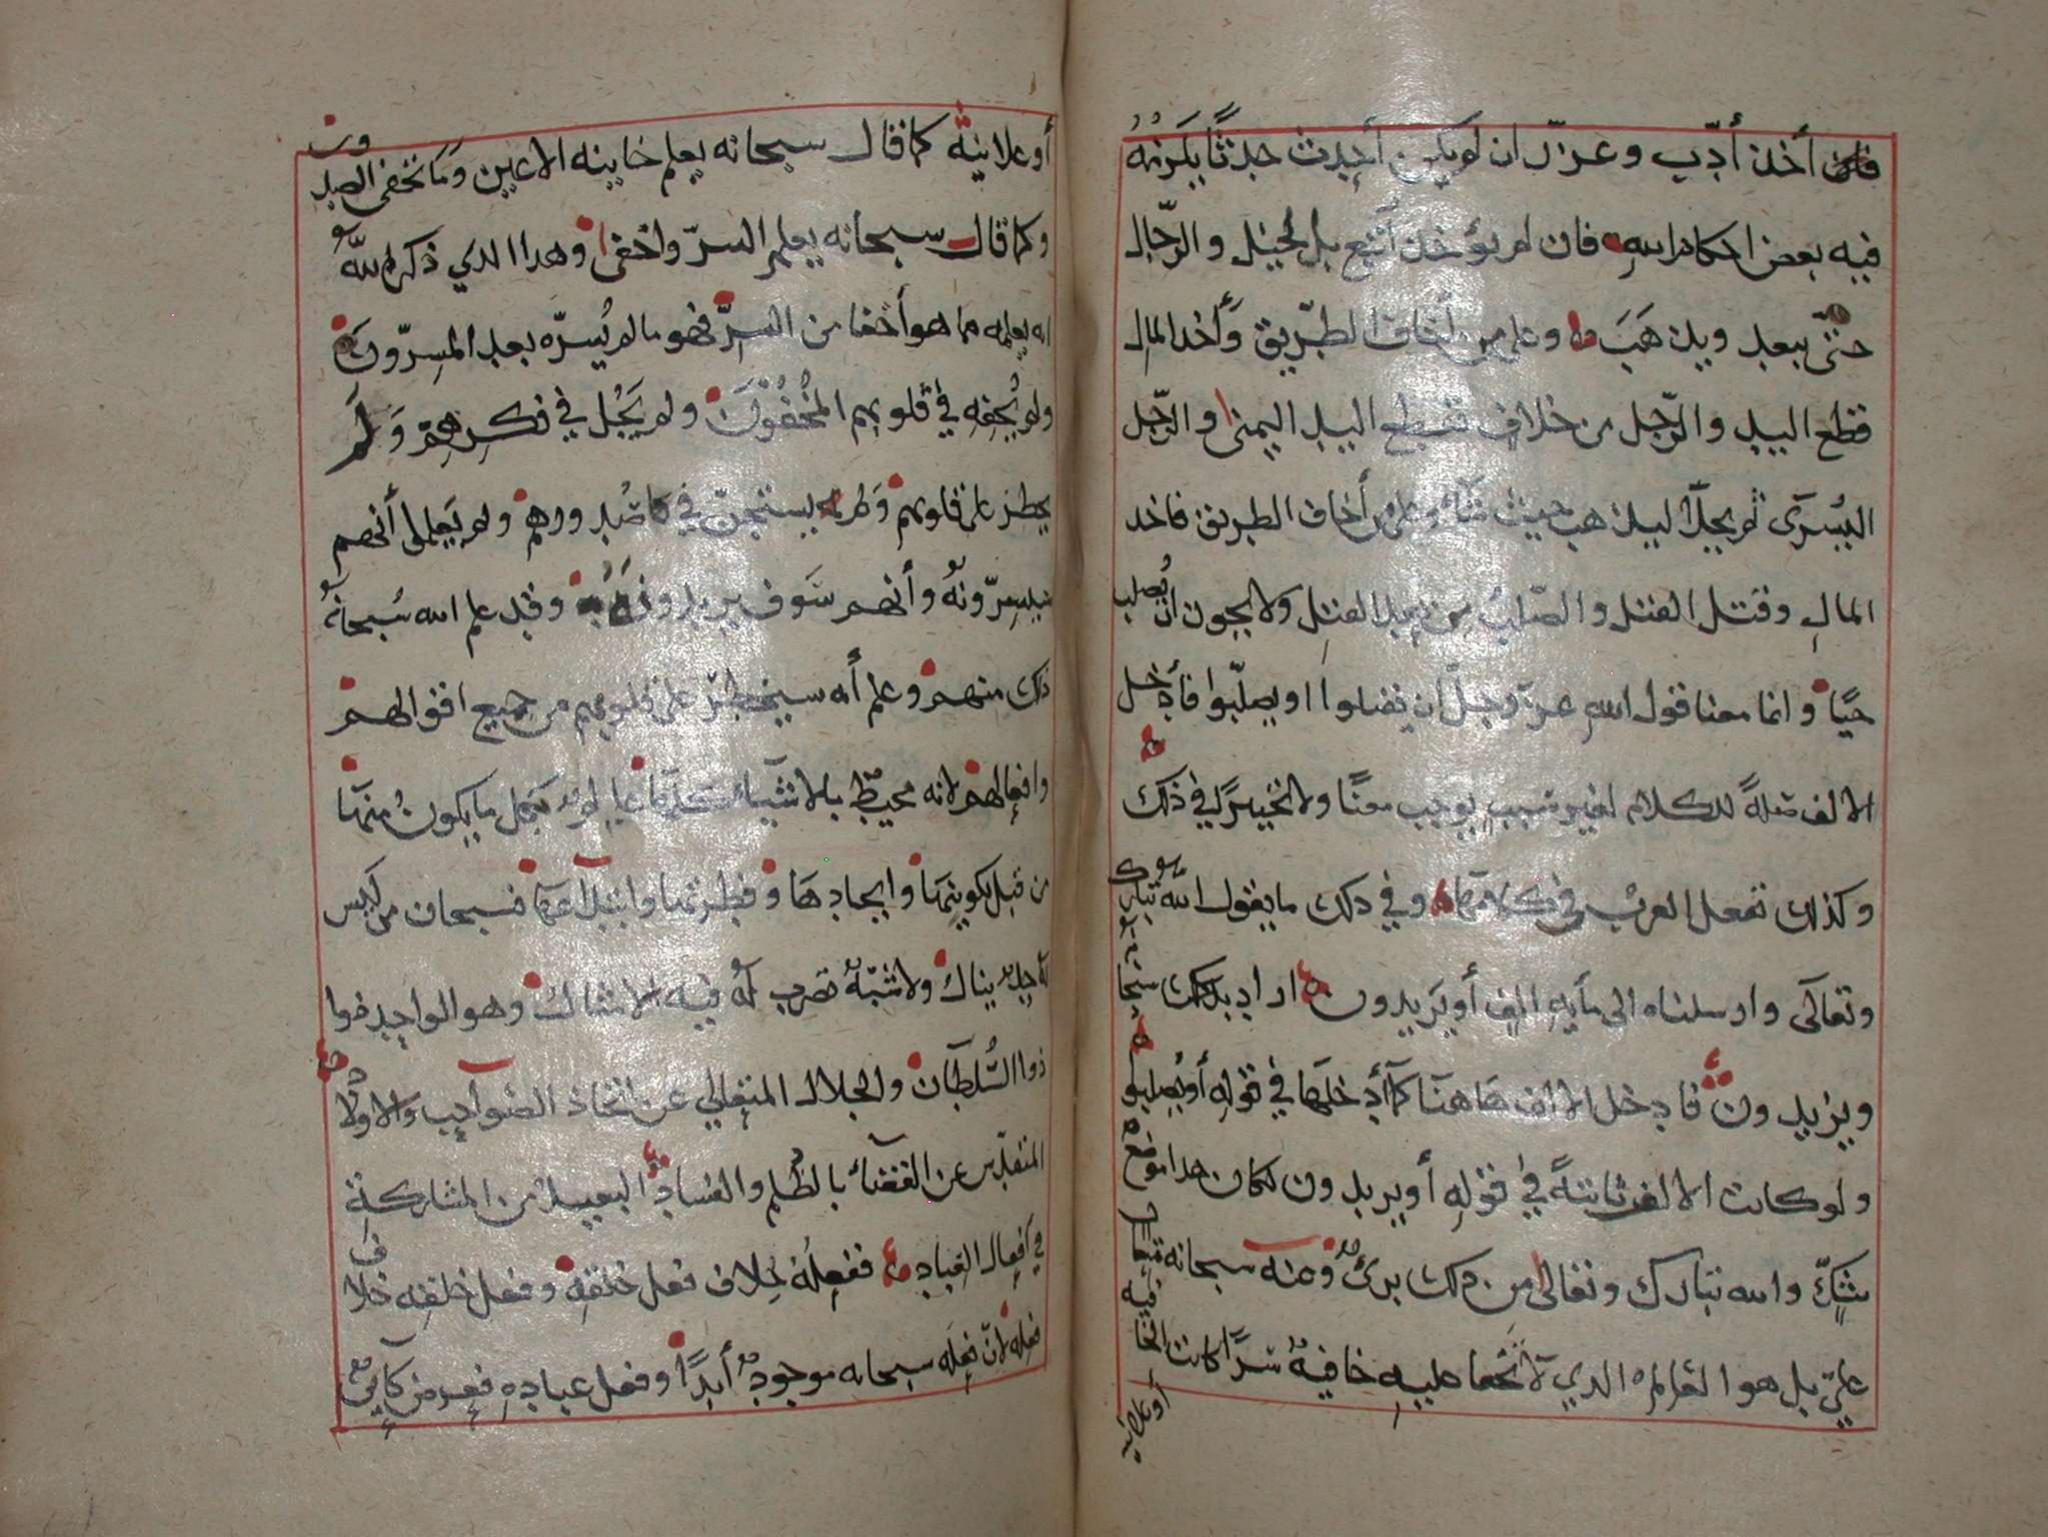 فان أخذ أدّب وعزّر ان لم يكن أحدث حدثًا يلزمه
فيه بعض احكام الله فان لم يؤخذ أتبع بالخيل والرّجال
حتّى يبعد ويذهب وعلى من أخاف الطّريق وأخذ المال
قطع اليد والرّجل من خلاف فتقطع اليد اليمنى والرّجل
اليسرى ثم يخلّا ليذهب حيث شاء وعلى من أخاف الطريق فاخذ
المال وقتل القتل والصّلب من بعد القتل ولا يجوز ان يصلب
حيًا وانما معنا قول الله عزّ وجلّ ان يقتلوا او يصلّبوا فأدخل
الالف صلةً للكلام لغير سبب يوجب معنًا ولا تخييرًا في ذلك
وكذلك تفعل العرب في كلامها وفي ذلك ما يقول الله تبارك
وتعالى وارسلناه الى مأية الف أو يزيدون اراد بذلك سبحانه
ويزيدون فادخل الالف هاهنا كما أدخلها في قوله أو يصلبوا
ولو كانت الالف ثابتةً في قوله أو يزيدون لكان هذا موقع
شكّ والله تبارك وتعالى من ذلك برئ وعنه سبحانه متعال
عليّ بل هو العالم الذي لا تخفا عليه خافية سرًا كانت الخافية
أو علانية
أو علانية كما قال سبحانه يعلم خاينه الاعين وما تخفى الصدور
وكما قال سبحانه يعلم السرّ واخفى وهذا الذي ذكر الله
انه يعلمه مما هو أخفا من السرّ فهو ما لم يُسرّه بعد المسرّون
ولم يُخفه في قلوبهم المُخفُون ولم يَجُل في فكرهم وَلَم
يخطر على قلوبهم ولم يستجنّ في صدورهم ولم يعلموا أنهم
سيسرّونه وأنهم سَوف يريدونه وقد علم الله سُبحانه
ذلك منهم وعلم أنه سيخطر على قلوبهم من جميع اقوالهم
وافعالهم لانه محيط بالاشياء كلها عالم بكل ما يكون منها
من قبل تكوينها وايجادها وفطرتها وابتداعها فسبحان من ليس
له حدّ ينال ولا شبه تضرب له فيه الامثال وهو الواحد
ذو السُّلطان والجلال المتعالي عن اتخاذ الصواحب والاولاد
المتقدّس عن القضاء بالظُلم والفساد البعيد من المشاركة
في أفعال العباد ففعله خلاف فعل خلقه وفعل خلقه خلاف
فعله لانّ فعله سبحانه موجود أبدًا وفعل عباده فعرض كاين